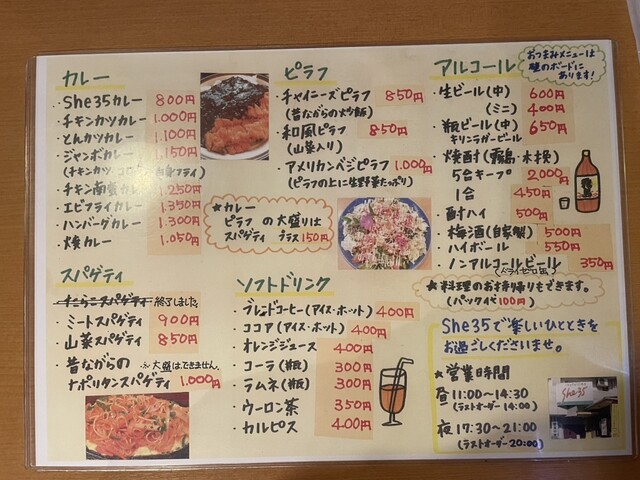 カレー
・She35カレー 800円
・チキンカツカレー 1.000円
・とんかツカレー 1.100円
・ジャンボカレー 1.150円
・チキン南蛮カレー 1.250円
・エビフライカレー 1.350円
・ハンバーグカレー 1.300円
・焼カレー 1.050円
スパゲティ
終了しました
・ミートスパゲティ 900円
・山菜スパゲティ 850円
・昔ながらの ※大盛はできません。
ナポリタンスパゲティ 1.000円
ピラフ
・チャイニーズピラフ 850円
(昔ながらの炒飯)
・和風ピラフ 850円
(山菜入り)
・アメリカンベジピラフ 1.000円
(ピラフの上に生野菜たっぷり)
★カレー
ピラフ の大盛りは
スパゲティ プラス150円
ソフトドリンク
・ブレンドコーヒー(アイス・ホット) 400円
・ココア(アイス・ホット) 400円
・オレンジジュース 400円
・コーラ(瓶) 300円
・ラムネ(瓶) 300円
・ウーロン茶 350円
・カルピス 400円
アルコール
おつまみメニューは
壁のボードに
あります!
・生ビール(中) 600円
(ミニ) 400円
・瓶ビール(中) 650円
キリンラガービール
・焼酎(霧島・木挽)
5合キープ 2,000円
1合 450円
・酎ハイ 500円
・梅酒(自家製) 500円
・ハイボール 550円
・ノンアルコールビール 350円
(ドライゼロ缶)
★料理のお持帰りもできます。
(パック代100円)
She35で楽しいひとときを
お過ごしくださいませ。
★営業時間
昼 11:00〜14:30
(ラストオーダー14:00)
夜 17:30〜21:00
(ラストオーダー20:00)
She35